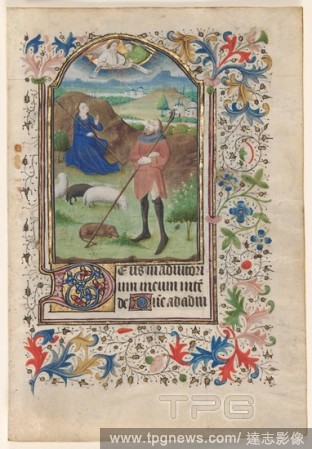 Deus in adiutori
um meum inte
de Dn̄e ad adiu
TPG
www.tpgnews.com/ 達志影像